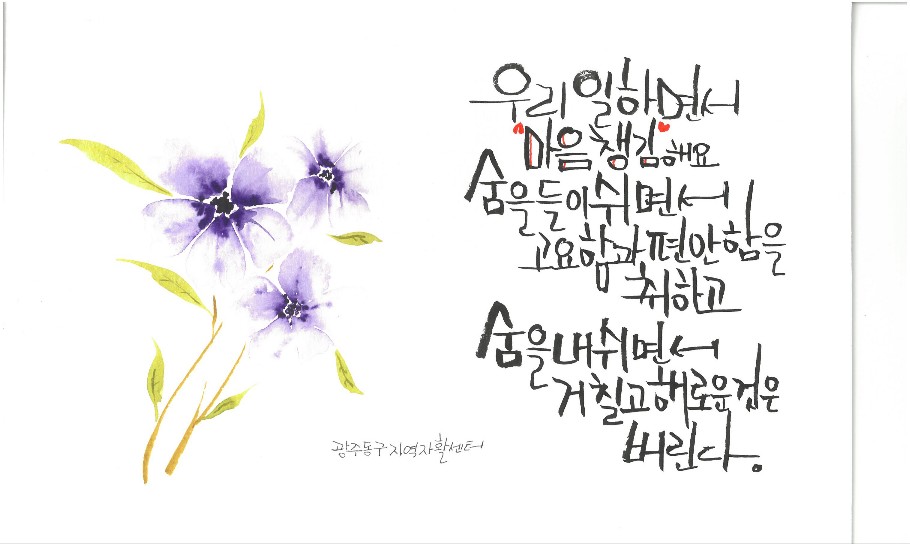 우리 일하면서
"마음챙김"해요
숨을 들이쉬면서
고요함과 편안함을
취하고
숨을 내쉬면서
거칠고 해로운 겁은
버린다.
광주동구지역자활센터